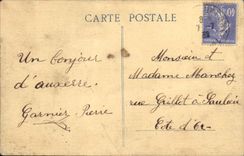 CARTE POSTALE
Un bonjour
d'auxerre.
Garnier Pierre
Monsieur et
Madame Manchez
rue Grillot à Saulieu
Cote d'Or